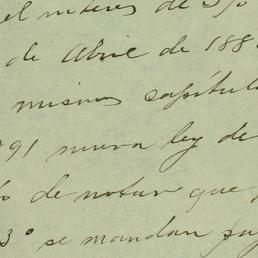 el interes de 3%
de Abril de 188
mismo capítulo
91 nueva ley de
de notar que
3º se mandan pa